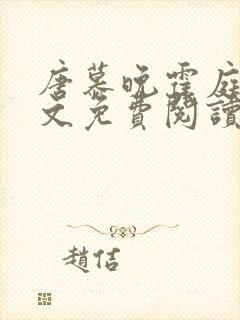 唐慕晚霆庭
文免費閱讀
趙佶